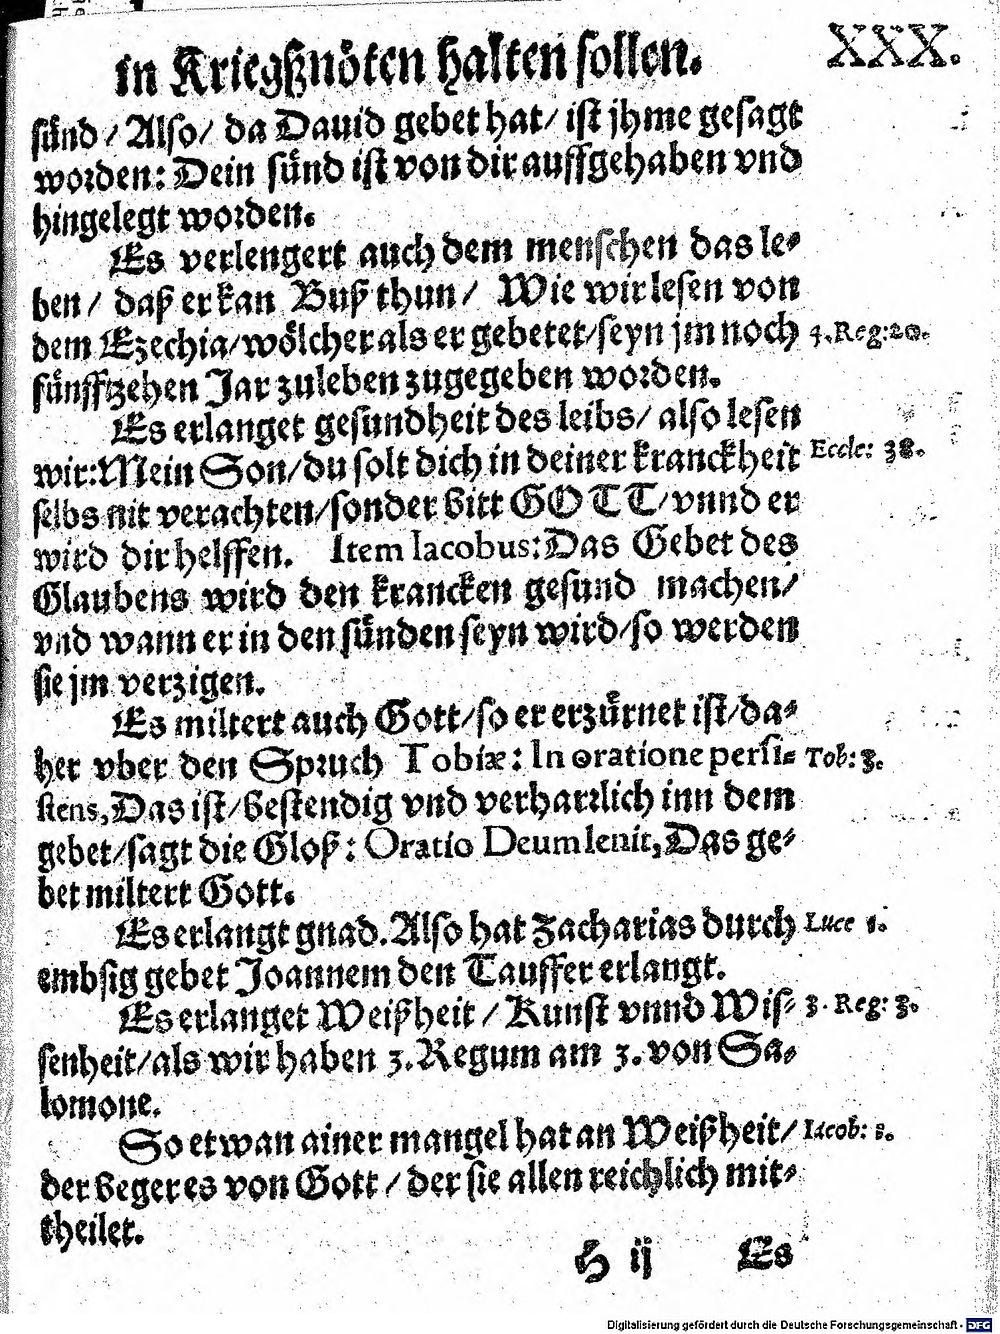 in Kriegßnöten halten sollen. XXX.
sünd / Also / da Dauid gebet hat / ist jhme gesagt
worden: Dein sünd ist von dir auffgehaben vnd
hingelegt worden.
Es verlengert auch dem menschen das le-
ben / daß er kan Buß thun / Wie wir lesen von
dem Ezechia / wölcher als er gebetet / seyn jm noch 4. Reg: 20.
fünfftzehen Jar zuleben zugegeben worden.
Es erlanget gesundheit des leibs / also lesen
wir: Mein Son / du solt dich in deiner kranckheit Eccle: 38.
selbs nit verachten / sonder bitt GOTT / vnnd er
wird dir helffen. Item Iacobus: Das Gebet des
Glaubens wird den krancken gesund machen /
vnd wann er in den sünden seyn wird / so werden
sie jm verzigen.
Es miltert auch Gott / so er erzürnet ist / da-
her vber den Spruch Tobiæ: In oratione persi- Tob: 3.
stens, Das ist / bestendig vnd verharrlich inn dem
gebet / sagt die Gloß: Oratio Deum lenit, Das ge-
bet miltert Gott.
Es erlangt gnad. Also hat Zacharias durch Luce 1.
embsig gebet Joannem den Tauffer erlangt.
Es erlanget Weißheit / Kunst vnnd Wis- 3. Reg: 3.
senheit / als wir haben 3. Regum am 3. von Sa-
lomone.
So etwan ainer mangel hat an Weißheit / Iacob: 1.
der beger es von Gott / der sie allen reichlich mit-
theilet.
H ij Es
Digitalisierung gefördert durch die Deutsche Forschungsgemeinschaft - DFG